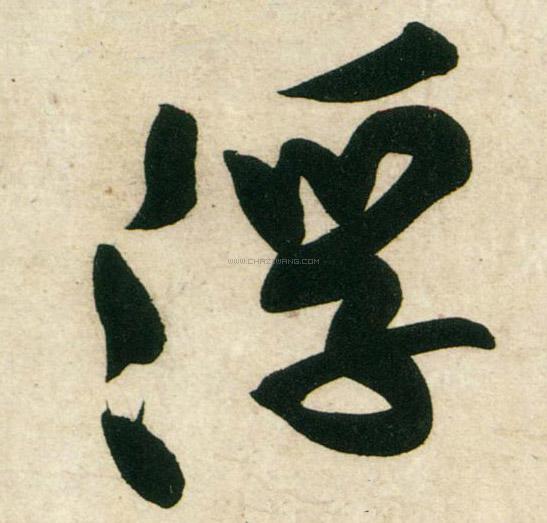 浮
WWW.CHAZIWANG.COM